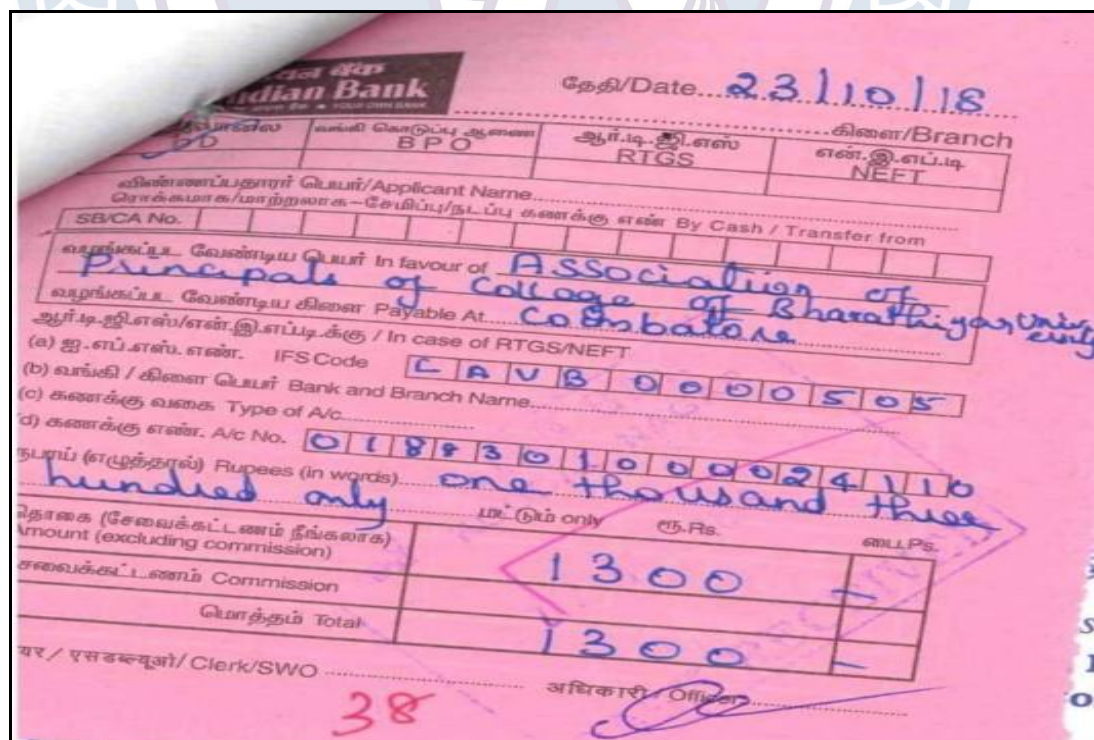 ndian Bank
YOUR OWN BANK
தேதி/Date 23/10/18
கிளை/Branch
DD
வங்கி கொடுப்பு ஆணை
BPO
ஆர்.டி.ஜி.எஸ்
RTGS
என்.இ.எப்.டி
NEFT
விண்ணப்பதாரர் பெயர்/Applicant Name
ரொக்கமாக/மாற்றலாக–சேமிப்பு/நடப்பு கணக்கு எண் By Cash / Transfer from
SB/CA No.
வழங்கப்பட வேண்டிய பெயர் In favour of Association of
Principals of College of Bharathiyar
வழங்கப்பட வேண்டிய கிளை Payable At Coimbatore
ஆர்.டி.ஜி.எஸ்/என்.இ.எப்.டி.க்கு / In case of RTGS/NEFT
(a) ஐ.எப்.எஸ். எண். IFS Code LAVB0000505
(b) வங்கி / கிளை பெயர் Bank and Branch Name
(c) கணக்கு வகை Type of A/c
d) கணக்கு எண். A/c No.
ரூபாய் (எழுத்தால்) Rupees (in words) one thousand three
hundred only மட்டும் only ரூ.Rs. பை.Ps.
தொகை (சேவைக்கட்டணம் நீங்கலாக)
Amount (excluding commission) 1300 –
சேவைக்கட்டணம் Commission
மொத்தம் Total 1300 –
यर / एसडब्ल्यूओ/ Clerk/SWO
अधिकारी / Officer
38